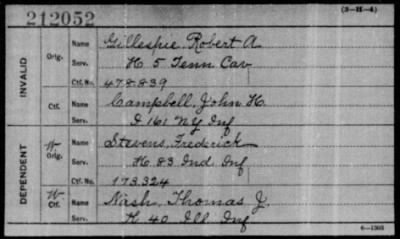 212052
(3-H-4)
INVALID
Orig.
Name Gillespie, Robert A
Serv. H 5 Tenn Cav
Ctf. No. 478.839
Ctf.
Name Campbell, John H.
Serv. D 161 N Y Inf
DEPENDENT
W Orig.
Name Stevens, Frederick
Serv. H. 83 Ind Inf
Ctf. No. 173.324
W Ctf.
Name Nash, Thomas J.
Serv. K 40 Ill Inf
6-1303